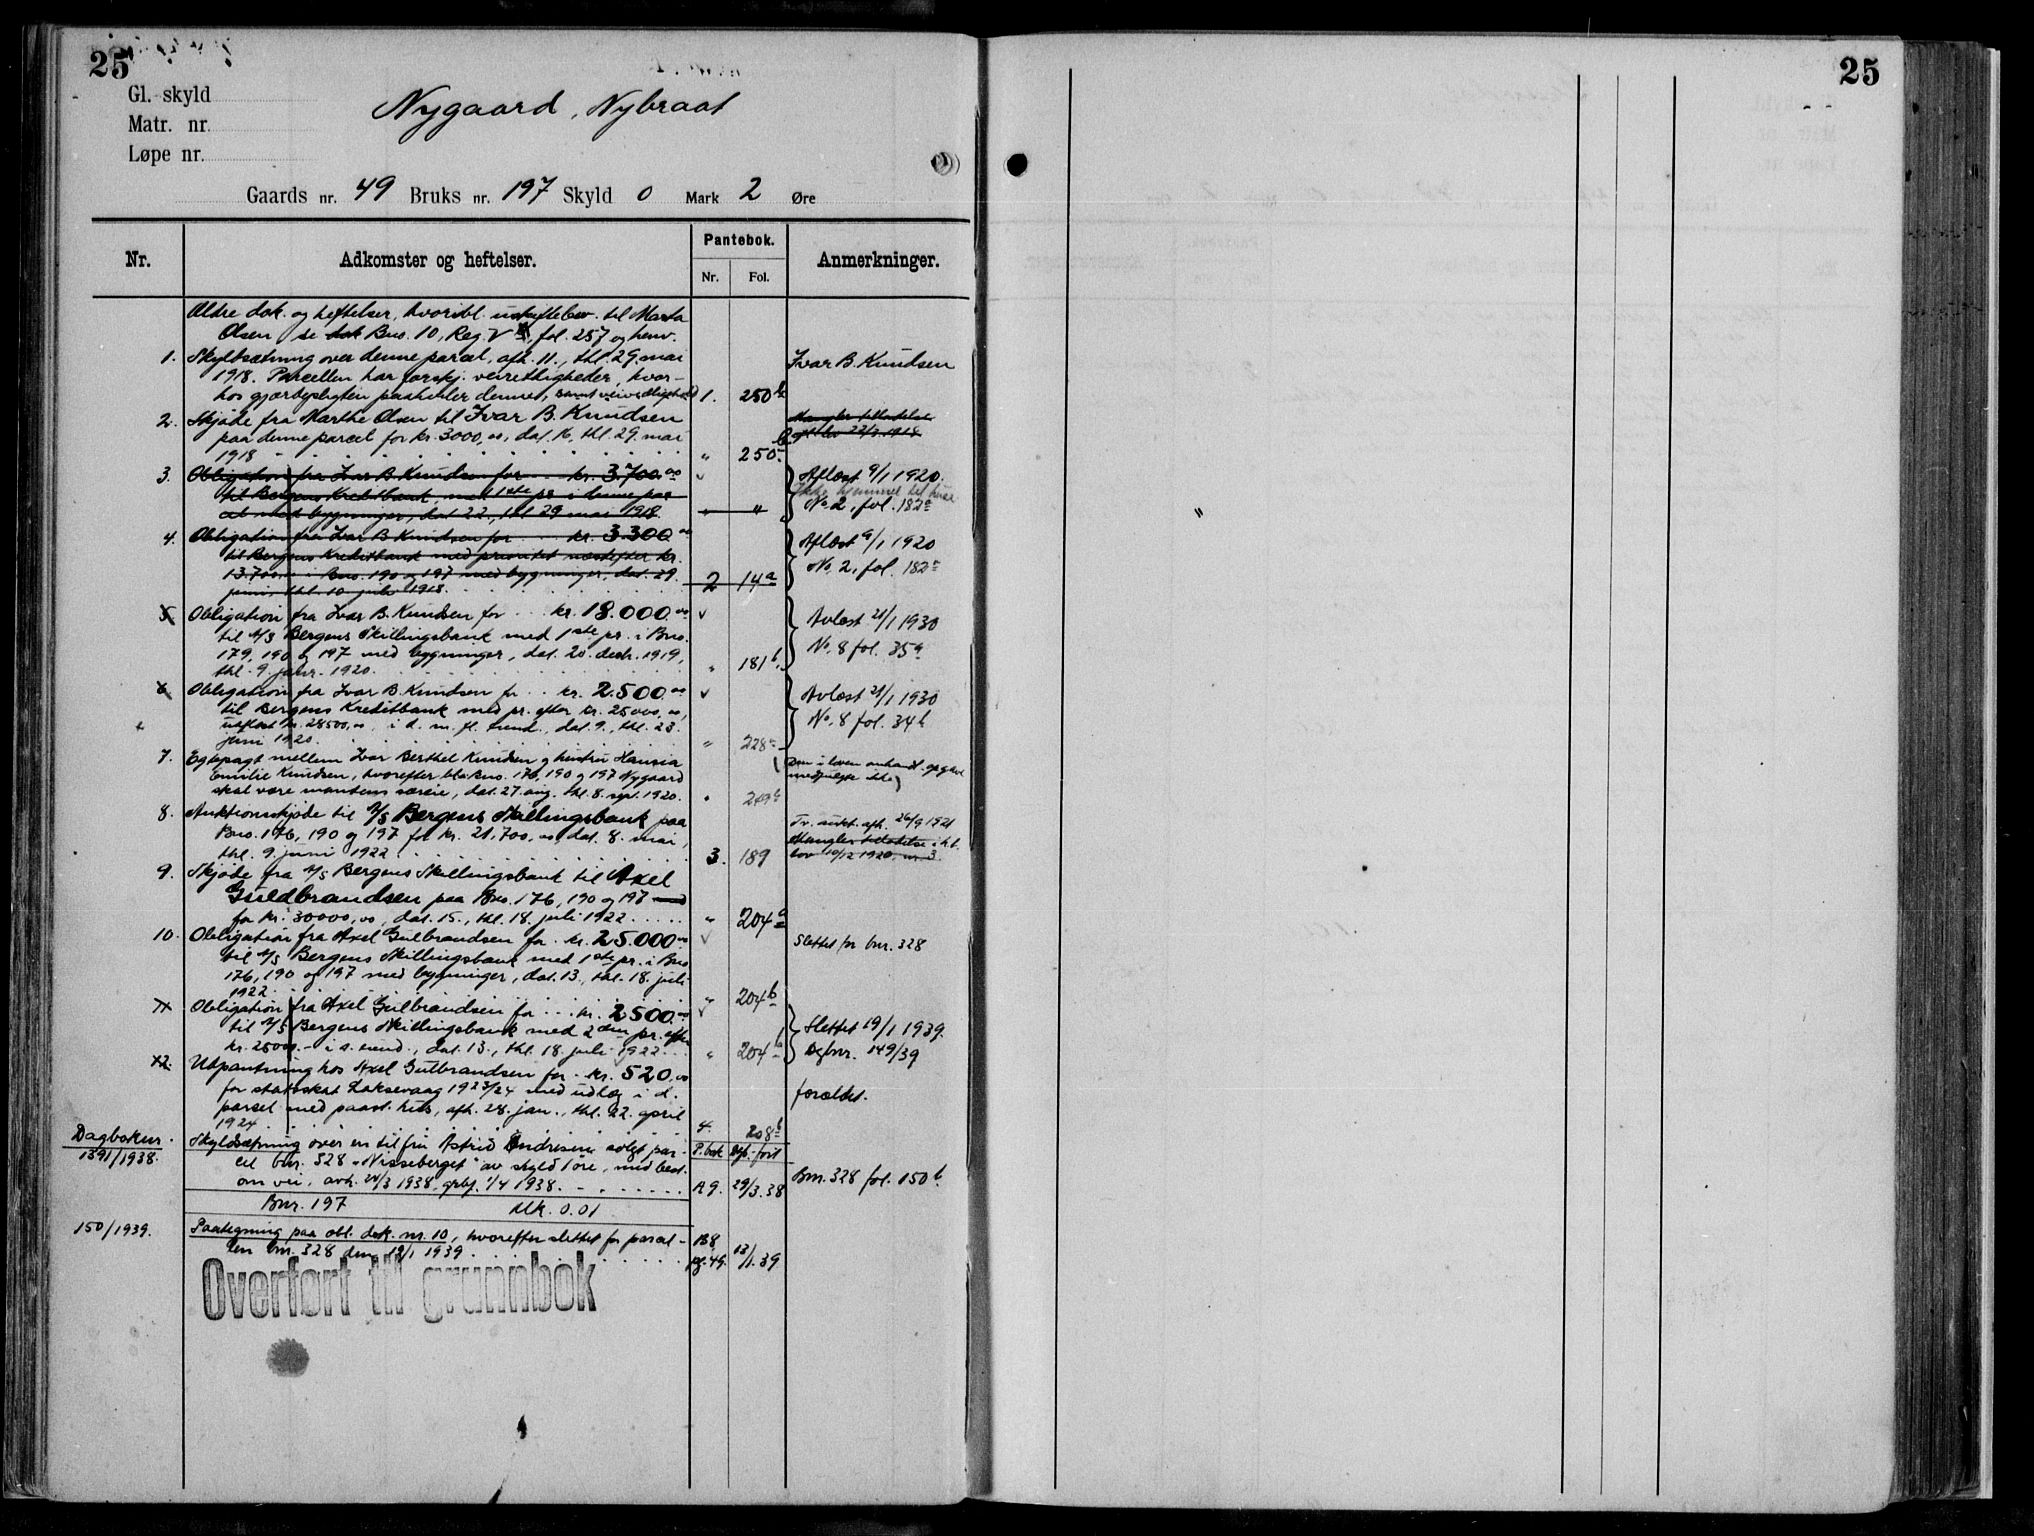 25
Gl. skyld
Matr. nr.
Løpe nr.
Nygaard, Nybraat
Gaards nr. 49 Bruks nr. 197 Skyld 0 Mark 2 Øre
Nr. Adkomster og heftelser. Pantebok. Anmerkninger.
Nr. Fol.
Ældre dok. og heftelser, hvoribl. til Marta
Olsen se Bno. 10, Reg. V, fol. 257 og henv.
1. Skyldsætning over denne parcel, afh. 11., thl. 29. mai
1918. Parcellen har forskj. veirettigheder, hvor-
hos gjærdepligten paahviler denne, samt veivedligehold 1. 250b
Ivar B. Knudsen
2. Skjøde fra Marthe Olsen til Ivar B. Knudsen
paa denne parcel for kr. 3000,00, dat. 16, thl. 29. mai
1918 " 250b
Mangler tilladelse
22/3 1918
3. Obligation fra Ivar B. Knudsen for kr. 3.700.00
til Bergens Kreditbank med 1ste pr. i denne par-
cel med bygninger, dat. 22., thl. 29 mai 1918. " "
Aflæst 9/1 1920.
Ikke hjemmel til huse
No 2, fol. 182a
4. Obligation fra Ivar B. Knudsen for kr. 3300.00
til Bergens Kreditbank med prioritet næstefter kr.
13.700.00 i Bno. 190 og 197 med bygninger, dat. 29.
juni, thl. 10. juli 1918. 2 14a
Aflæst 9/1 1920
No. 2, fol. 182a
5. Obligation fra Ivar B. Knudsen for kr. 18.000.00
til A/S Bergens Skillingsbank med 1ste pr. i Bno.
179, 190 og 197 med bygninger, dat. 20. decbr. 1919,
thl. 9. janr. 1920. " 181b
Avlæst 21/1 1930
No. 8 fol. 35a
6. Obligation fra Ivar B. Knudsen for kr. 2.500.00
til Bergens Kreditbank med pr. efter kr. 25000.00,
utlæst kr. 28500,00, i d. m. fl. eiend., dat. 9., thl. 23.
juni 1920. " 228a
Avlæst 21/1 1930
No. 8 fol. 34b
7. Egtepagt mellem Ivar Berthel Knudsen og hustru Hansia
Emilie Knudsen, hvorefter bl.a. Bno. 176, 190 og 197 Nygaard
skal være mandens særeie, dat. 27. aug. thl. 8. sept. 1920. " 249b
(Den i loven omhandl. opgave
medfulgte ikke)
8. Auktionsskjøde til A/S Bergens Skillingsbank paa
Bno. 176, 190 og 197 for kr. 21.700,00, dat. 8. mai,
thl. 9. juni 1922. 3. 189
Tv. aukt. afh. 26/9 1921
Mangler tilladelse i h.t.
lov 10/12 1920. nr. 3.
9. Skjøde fra A/S Bergens Skillingsbank til Axel
Guldbrandsen paa Bno. 176, 190 og 197
for kr. 30000,00, dat. 15., thl. 18. juli 1922 " 204a
10. Obligation fra Axel Gulbrandsen for kr. 25.000.00
til A/S Bergens Skillingsbank med 1ste pr. i Bno
176, 190 og 197 med bygninger, dat. 13., thl. 18. juli
1922. " 204b
Slettet for bnr. 328
11. Obligation fra Axel Gulbrandsen for kr. 2500.00
til A/S Bergens Skillingsbank med 2den pr. efter
kr. 25000.- i s. eiend., dat. 13., thl. 18. juli 1922. " 204b
Slettet 19/1 1939.
Dgbnr. 149/39
12. Utpantning hos Axel Gulbrandsen for kr. 520,00
for statsskat Laksevaag 1923/24 med udlæg i d.
parsel med paast. hus, afh. 28. jan., thl. 22. april
1924. 4. 208b
forældet.
Dagboknr. P.bok Dgb.-ført
1391/1938. Skyldsætning over en til fru Astrid Endresen solgt par-
cel bnr. 328 "Nisseberget" av skyld 1 øre, med best.
om vei, avh. 24/3 1938, grbf. 1/4 1938. A9. 29/3.38
Bnr. 328 fol. 150b.
Bnr. 197 Mk. 0.01
150/1939. Paategning paa obl. dok. nr. 10, hvorefter slettet for parsel-
len bnr. 328 den 19/1 1939 B8 pg. 49. 13/1.39
Overført til grunnbok
25